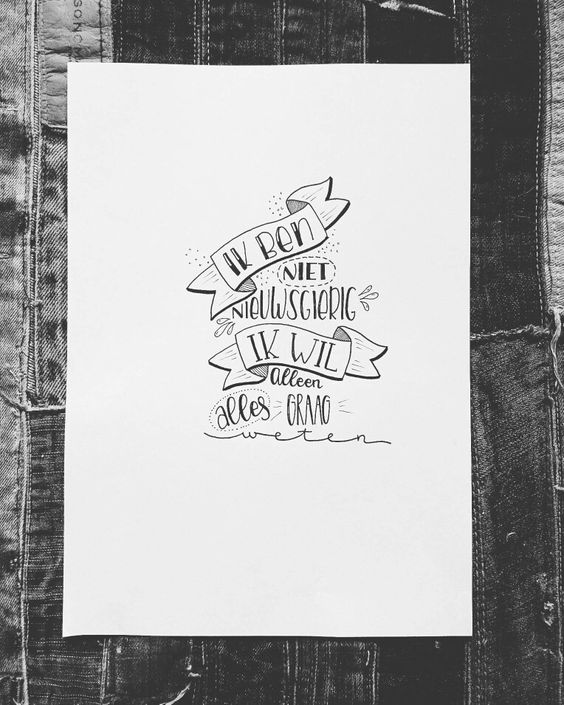 IK BEN
NIET
NIEUWSGIERIG
IK WIL
alleen
alles GRAAG
weten